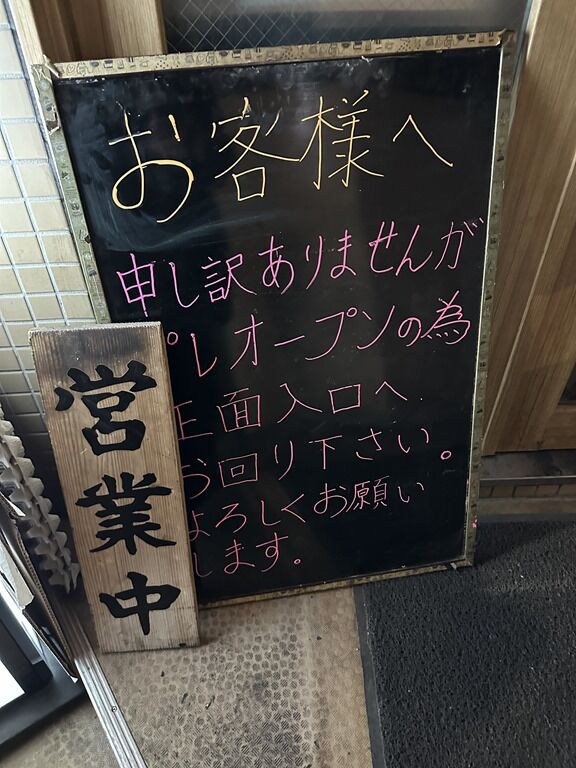 お客様へ
申し訳ありませんが
プレオープンの為
正面入口へ
お回り下さい。
よろしくお願い
します。
営業中